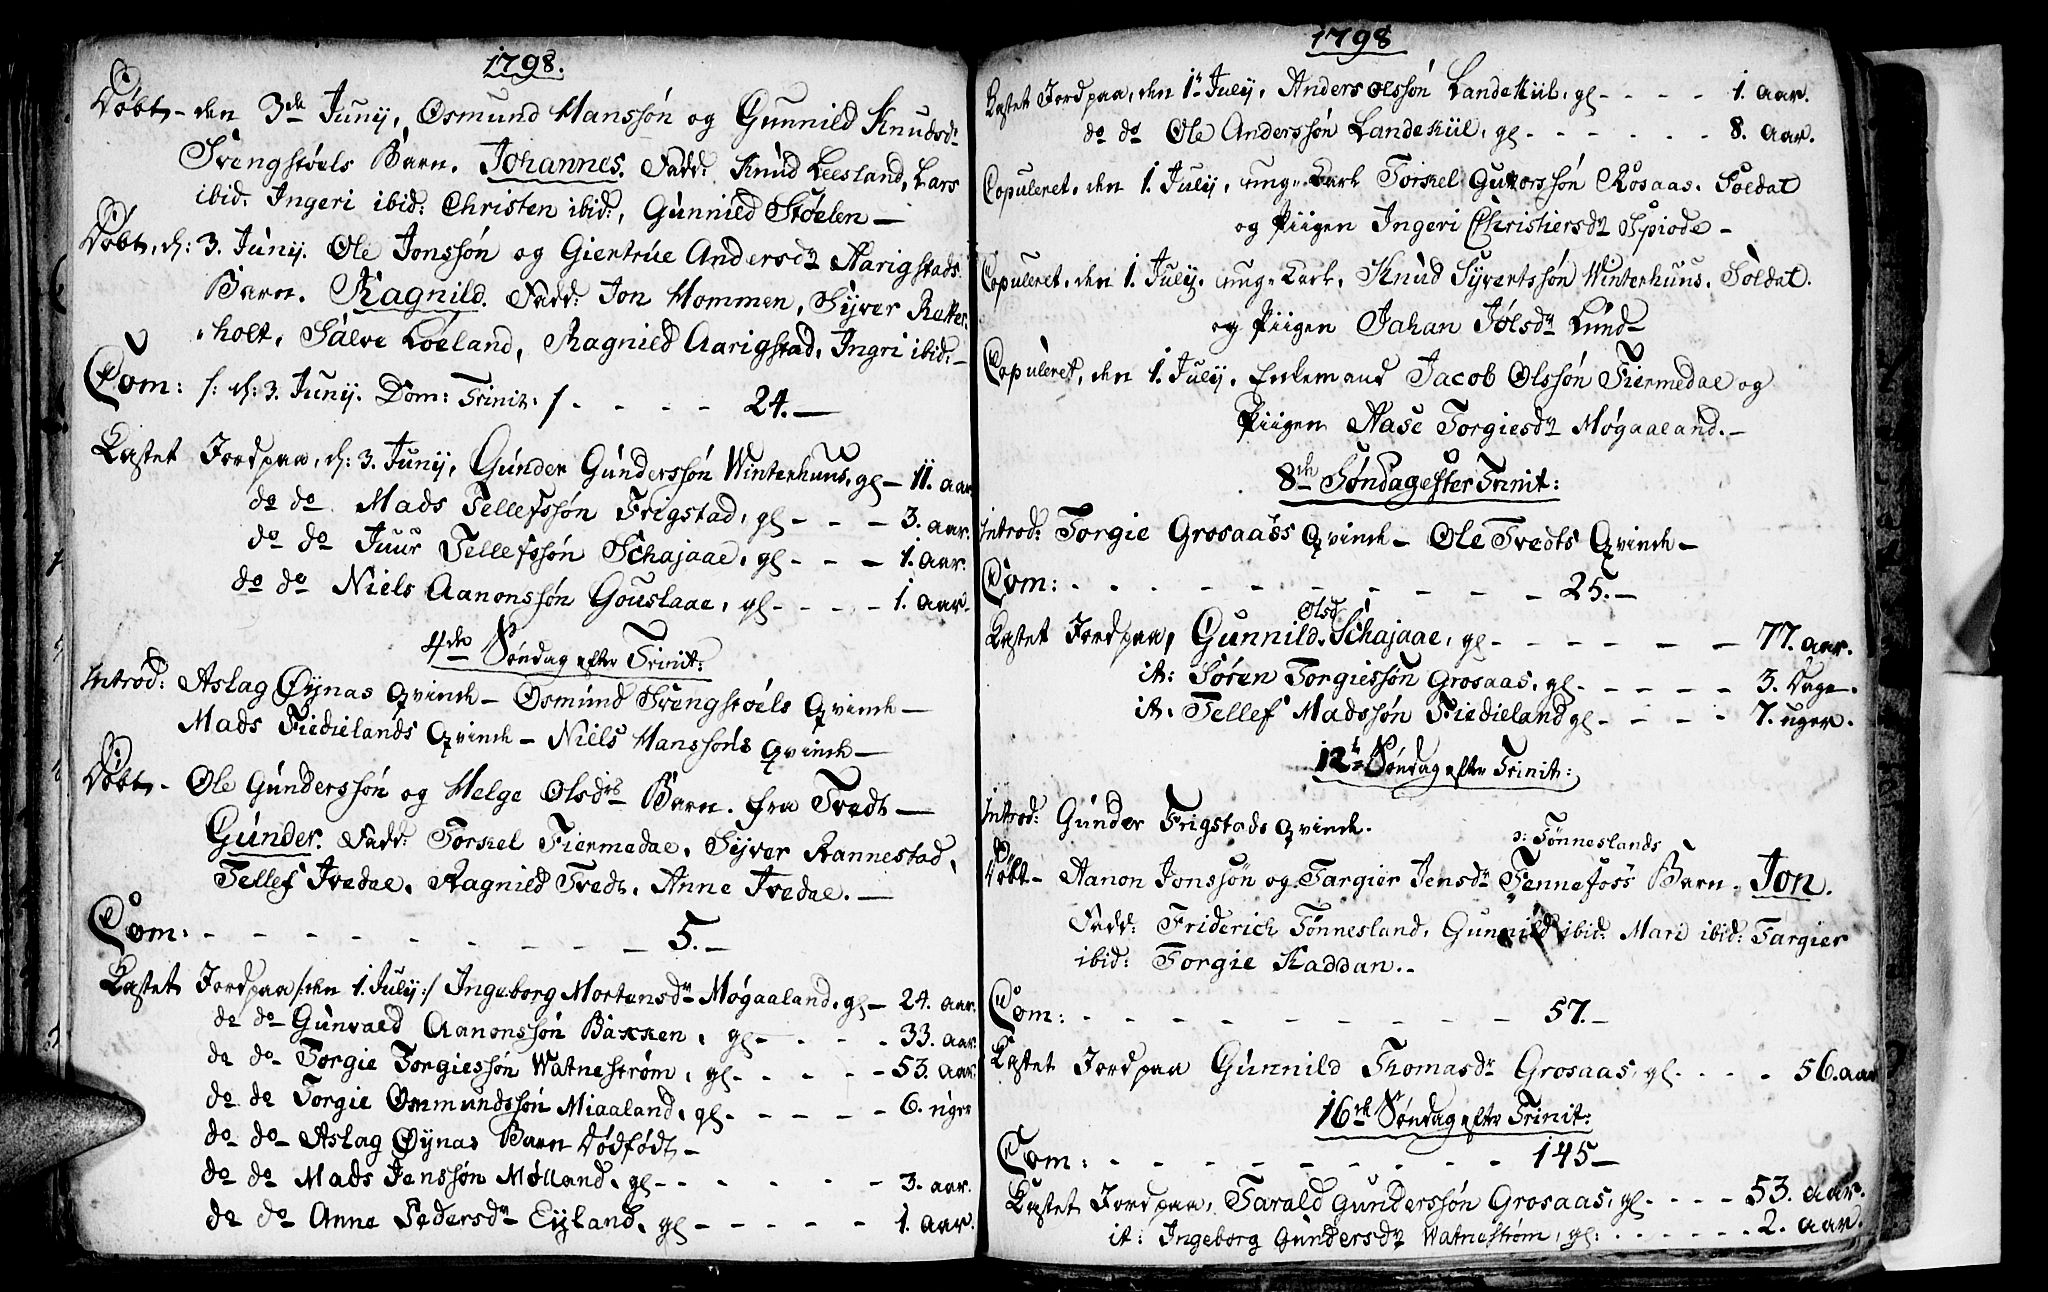 1798.
Døbt – den 3de Junij, Osmund Hanssøn og Gunnild Knudsdr
Svengstøels Barn. Johannes. Fadd: Knud Leesland, Lars
ibid: Ingeri ibid: Christen ibid:, Gunnild Støelen –
Døbt, d: 3. Junij. Ole Jonssøn og Giertrue Andersdr Aarigstads
Barn. Ragnild. Fadd: Jon Hommen, Syver Retter-
holt, Salve Løeland, Ragnild Aarigstad, Ingri ibid: –
Com: /: d: 3. Junij. Dom: Trinit: / - - - - 24. –
Kastet Jord paa, d: 3. Junij, Gunder Gunderssøn Winterhuus, gl – 11. aar
do do Mads Tellefssøn Frigstad, gl - - - 3. aar.
do do Juur Tellefssøn Schajaae, gl - - - 1. aar.
do do Niels Aanonssøn Gouslaae, gl - - - - 1. aar.
4de Søndag efter Trinit:
Introd: Aslag Øynas Qvinde – Osmund Svengstøels Qvinde –
Mads Fiedielands Qvinde – Niels Hanssøns Qvinde –
Døbt – Ole Gunderssøn og Helge Olsdrs Barn. fra Tvedt –
Gunder. Fadd: Torkel Fiermedae, Syver Rannestad,
Tellef Ivedae, Ragnild Tvedt, Anne Ivedae. –
Com: - - - - - - - - - 5. –
Kastet Jord paa /: den 1. July :/ Ingeborg Mortensdr Møgaaland, gl – 24. aar.
do do Gunvald Aanonssøn Bakken, gl - - - - 33. aar.
do do Torgie Torgiessøn Watnestrøm, gl - - - - - 53. aar.
do do Torgie Ommundssøn Miaaland, gl - - - - - 6. uger
do do Aslag Øynas Barn Dødfødt –
do do Mads Jenssøn Mølland, gl - - - - - - 3. aar.
do do Anne Pedersdr Eyland, gl - - - - - 1. aar.
1798
Kastet Jord paa, den 1te July, Anders Olssøn Landekiil, gl - - - - 1. aar.
do do Ole Anderssøn Landekiil, gl - - - - - - 8. aar.
Copuleret, den 1. July, unge Karl Torkel Guttorssøn Rosaas. Soldat
og Piigen Ingeri Christiersdr Spiode –
Copuleret, den 1. July, unge Karl, Knud Syvertssøn Winterhuus. Soldat.
og Piigen Jahan Jølsdr Lund –
Copuleret, den 1. July, Enkemand Jacob Olssøn Fiermedae og
Piigen Aase Torgiesdr Møgaaland. –
8de Søndag efter Trinit:
Introd: Torgie Grosaass Qvinde – Ole Tvedts Qvinde –
Com: - - - - - - - - - - 25. –
Olsdr
Kastet Jord paa, Gunnild Schajaae, gl - - - - - - 77. aar.
it: Søren Torgiessøn Grosaas, gl - - - - - 3. Dage.
it. Tellef Madssøn Fiedieland gl - - - - 7. uger.
12te Søndag efter Trinit:
Introd: Gunder Frigstads Qvinde.
ɔ: Tønneslands
Døbt – Aanon Jonssøn og Targier Jensdr Tennefoss Barn. Jon.
Fadd: Friderich Tønnesland, Gunnild ibid: Mari ibid: Targier
ibid: Torgie Raddan. –
Com: - - - - - - - - - - 57. –
Kastet Jord paa Gunnild Thomasdr Grosaas, gl - - - - 56. aar
16de Søndag efter Trinit:
Com: - - - - - - - - - 145 –
Kastet Jord paa, Tarald Gunderssøn Grosaas, gl - - - - 53. aar.
it: Ingeborg Gundersdr Watnestrøm, gl: - - - - - - 2. aar.